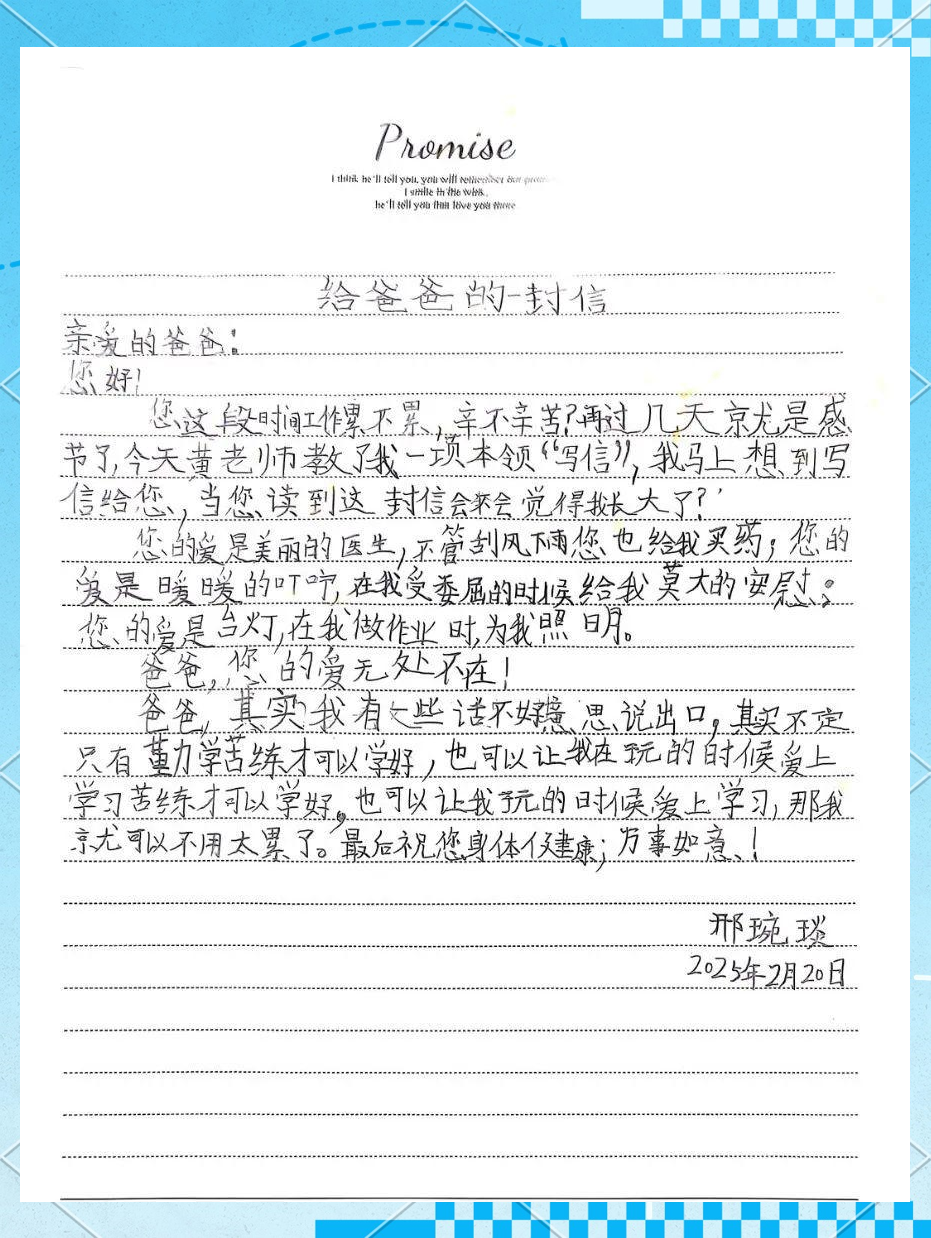 Promise
I think he'll tell you, you will remember our
I smile in the wink,
he'll tell you that love you more
给爸爸的一封信
亲爱的爸爸：
您好！
您这段时间工作累不累，辛不辛苦？再过几天就是感
节了，今天黄老师教了我一项本领“写信”，我马上想到写
信给您，当您读到这封信会不会觉得我长大了？
您的爱是美丽的医生，不管刮风下雨您也给我买药；您的
爱是暖暖的叮咛，在我受委屈的时候给我莫大的安慰；
您的爱是台灯，在我做作业时，为我照明。
爸爸，您的爱无处不在！
爸爸，其实我有些话不好意思说出口，其实不定
只有勤力学苦练才可以学好，也可以让我在玩的时候爱上
学习苦练才可以学好。也可以让我玩的时候爱上学习，那我
就可以不用太累了。最后祝您身体健康；万事如意！
邢琬琰
2025年2月20日